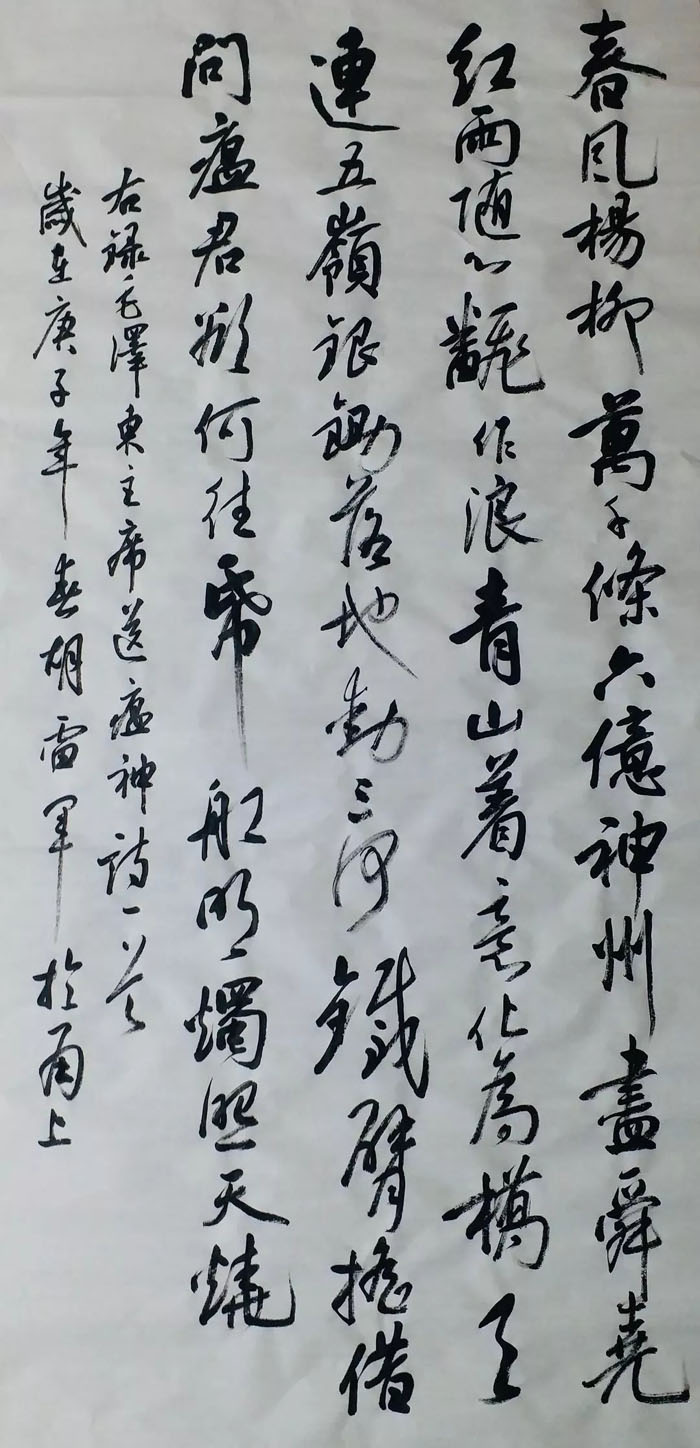 春風楊柳萬千條六億神州盡舜堯
紅雨隨心飜作浪青山着意化為橋天
連五嶺銀鋤落地動三河鐵臂搖借
問瘟君欲何往帋船明燭照天燒
右録毛澤東主席送瘟神詩一首
歲在庚子年春胡雷軍於甬上